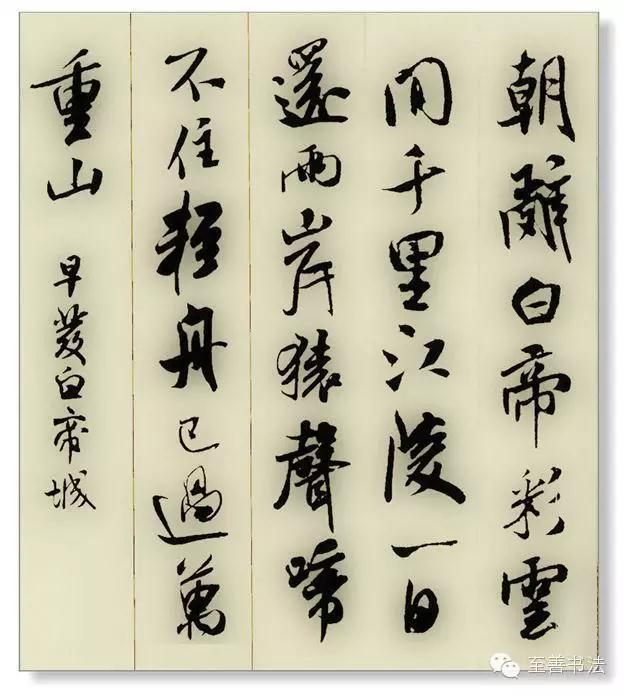 朝辭白帝彩雲
間千里江陵一日
還兩岸猿聲啼
不住輕舟已過萬
重山
早發白帝城
至善书法